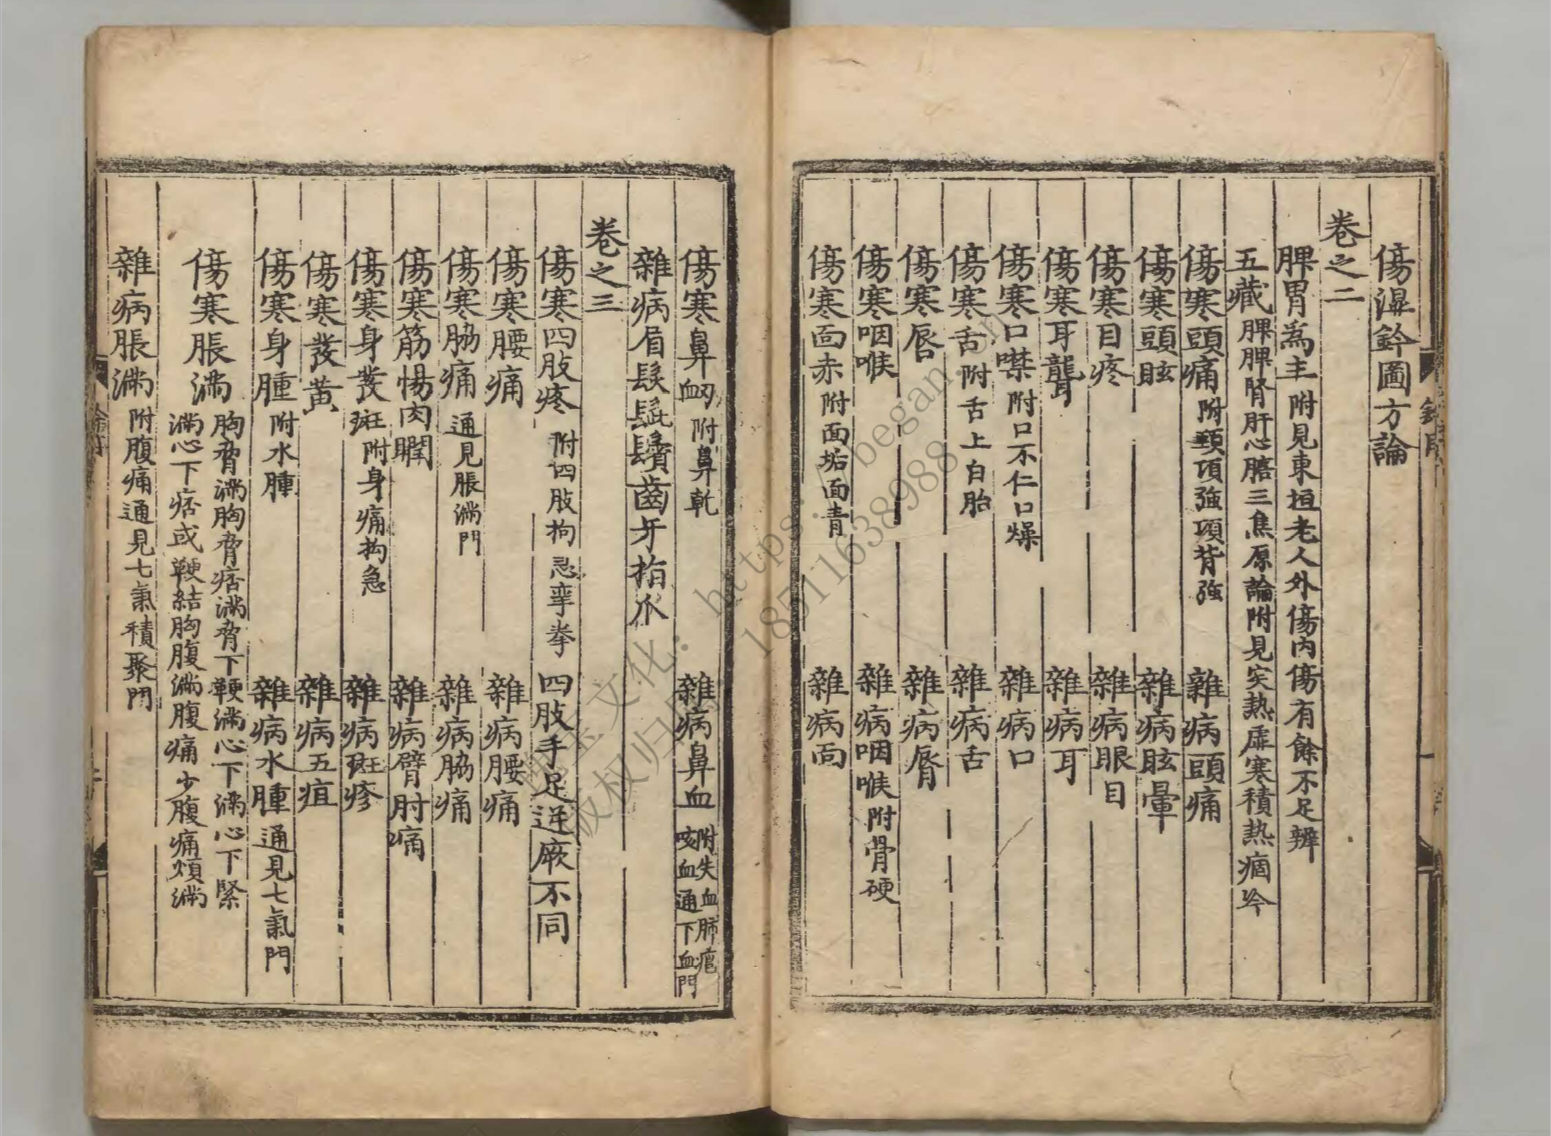 傷濕鈐圖方論
卷之二
脾胃爲主附見東垣老人外傷内傷有餘不足辨
五藏脾脾腎肝心膪三焦原論附見実熱虛寒積熱痼冷
傷寒頭痛附頸項強項背強 雜病頭痛
傷寒頭眩 雜病眩暈
傷寒目疼 雜病眼目
傷寒耳聾 雜病耳
傷寒口噤附口不仁口燥 雜病口
傷寒舌附舌上白胎 雜病舌
傷寒唇 雜病唇
傷寒咽喉 雜病咽喉附骨硬
傷寒面赤附面垢面青 雜病面
傷寒鼻衂附鼻乾 雜病鼻血附失血肺疽咳血通下血門
雜病眉髮髭鬚齒牙指爪
卷之三
傷寒四肢疼附四肢拘急攣拳 四肢手足逆厥不同
傷寒腰痛 雜病腰痛
傷寒脇痛通見脹滿門 雜病脇痛
傷寒筋惕肉瞤 雜病臂肘痛
傷寒身發斑附身痛拘急 雜病斑疹
傷寒發黃 雜病五疸
傷寒身腫附水腫 雜病水腫通見七氣門
傷寒脹滿胸脅滿胸脅痞滿脅下鞕滿心下滿心下緊
滿心下痞或鞕結胸腹滿腹痛少腹痛煩滿
雜病脹滿附腹痛通見七氣積聚門
https://began.
18511638988
玉文化：
版权归